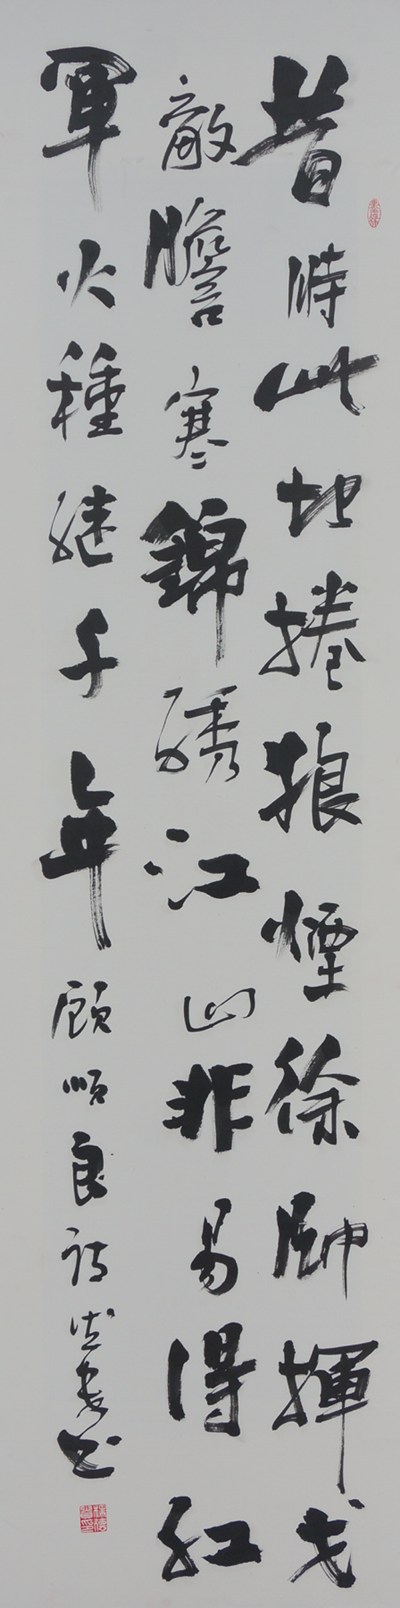 昔時此地捲狼煙徐帥揮戈
敵膽寒錦綉江山非易得紅
軍火種继千年顧順良詩 書